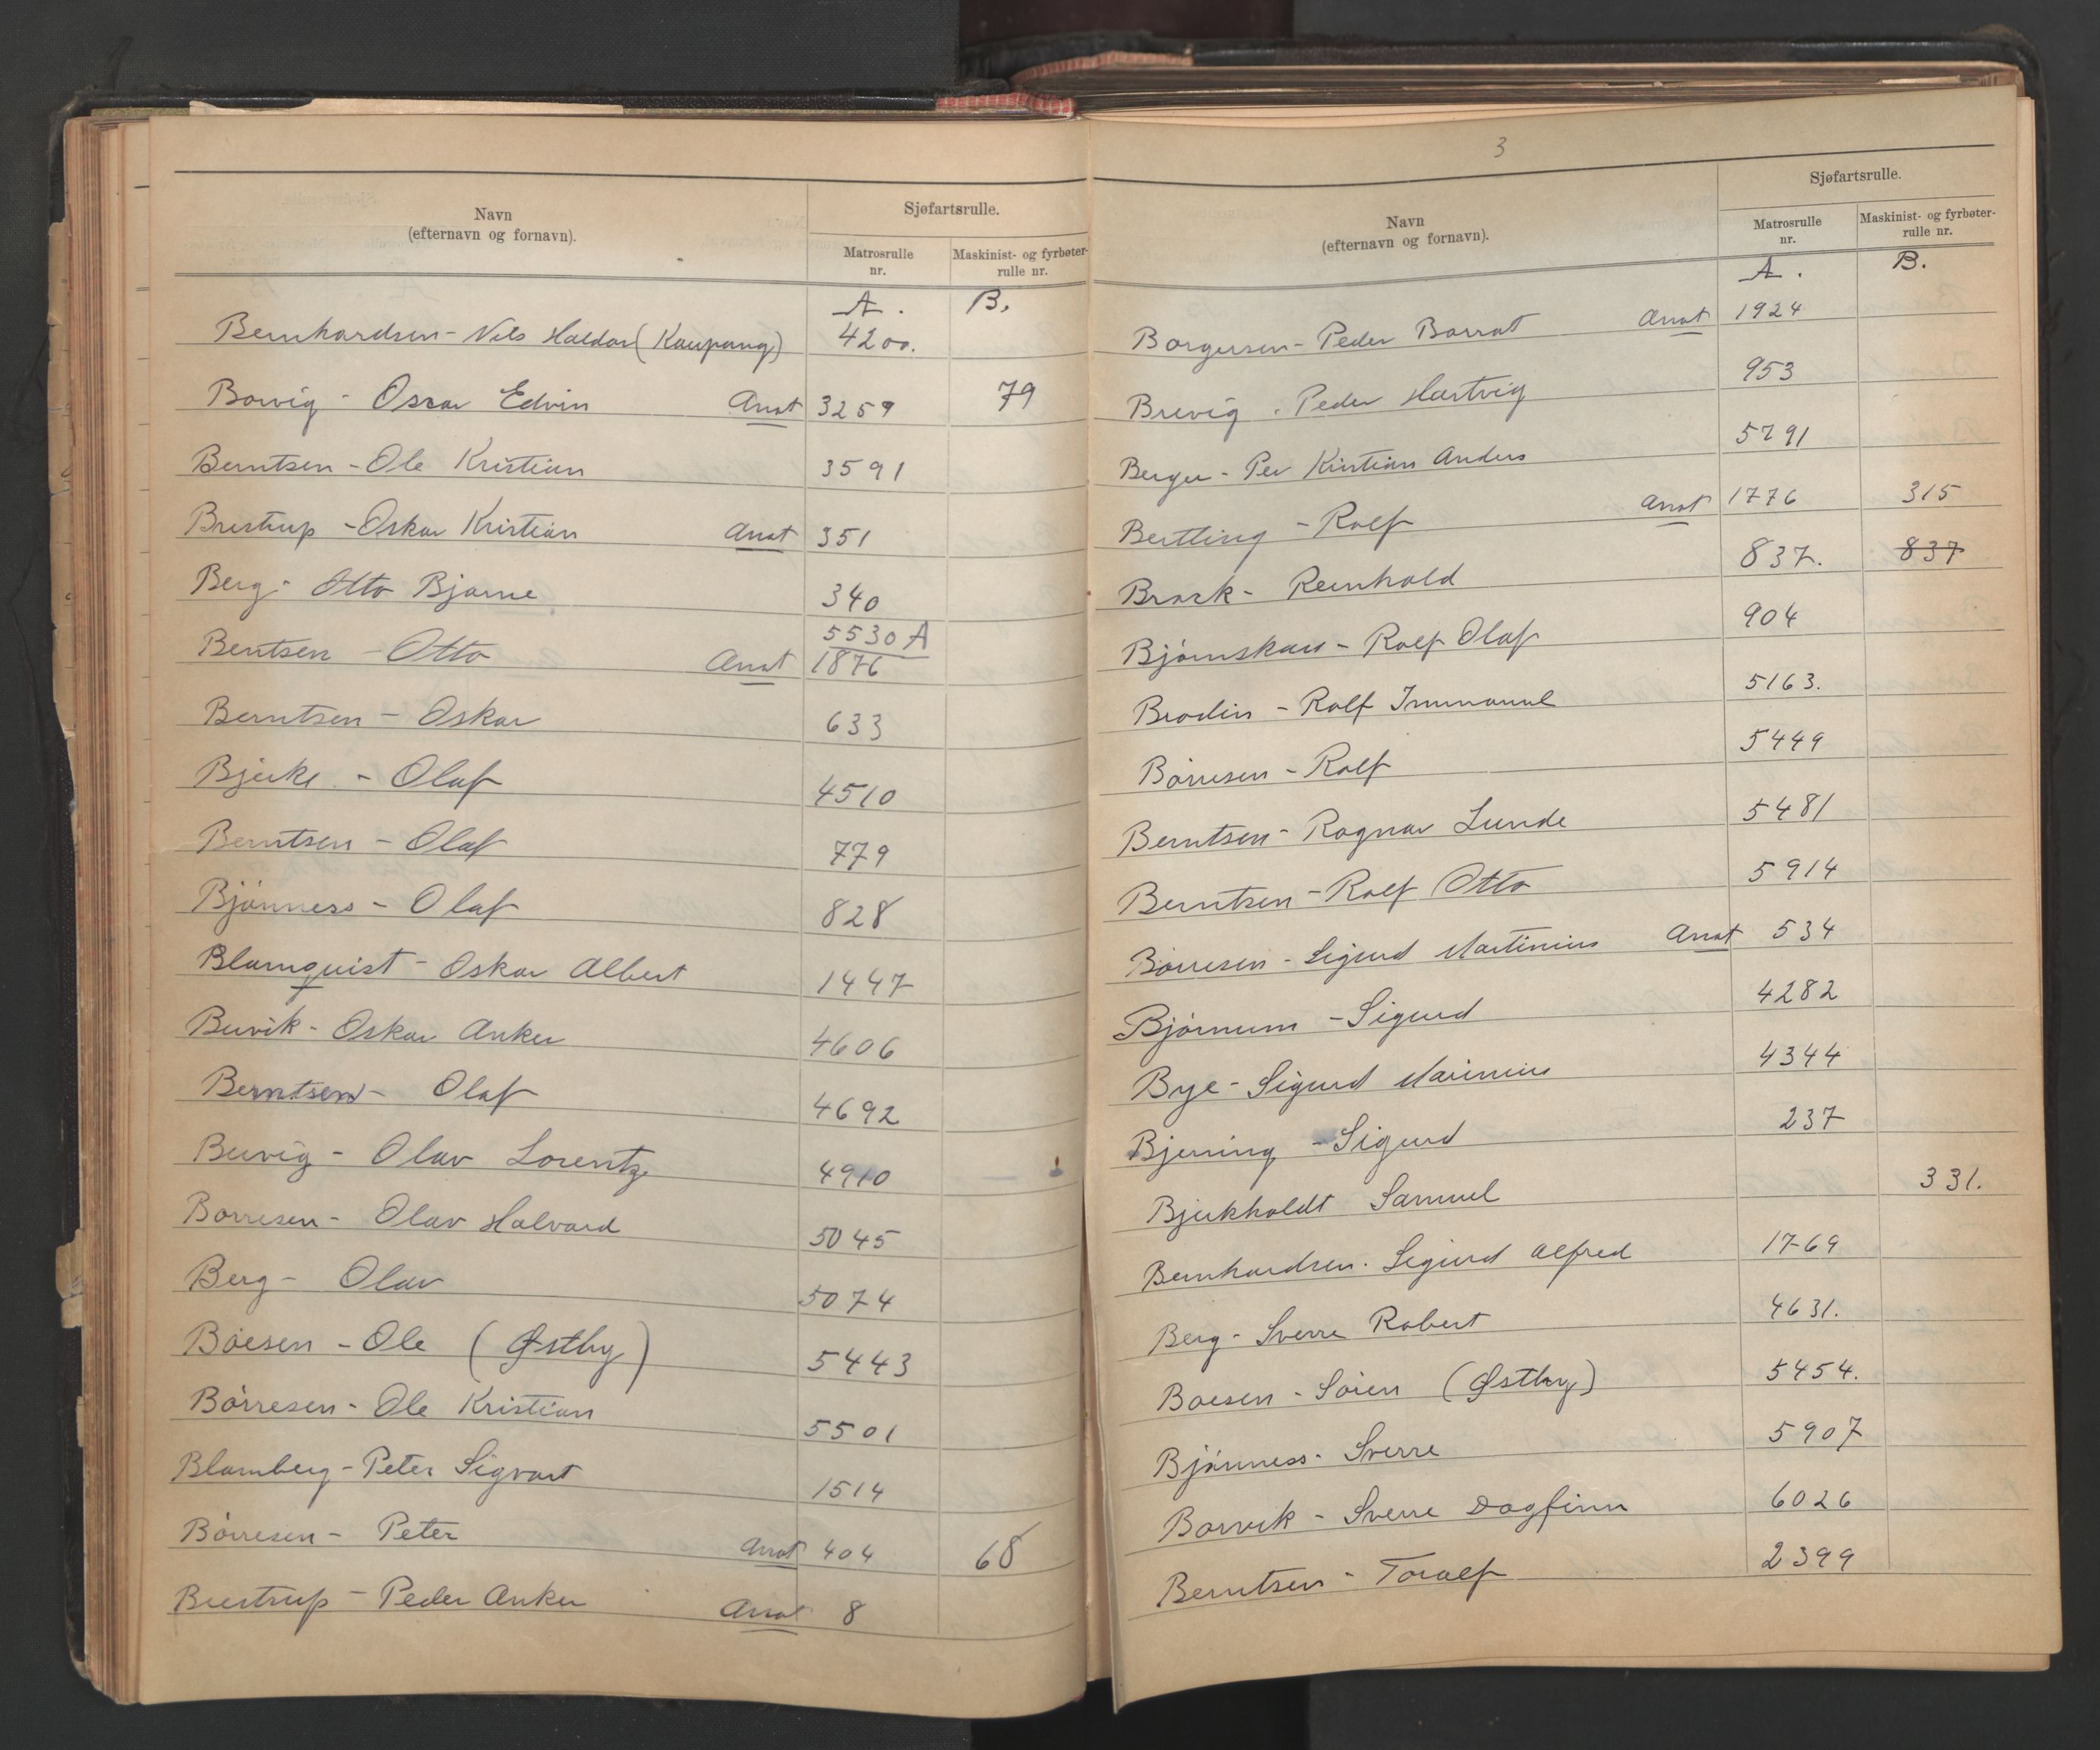 Navn
(efternavn og fornavn).
Sjøfartsrulle.
Matrosrulle
nr.
Maskinist- og fyrbøter-
rulle nr.
A. B.
Bernhardsen - Nils Haldor (Kaupang) 4200.
Borvig - Oscar Edvin Anst 3259 79
Berntsen - Ole Kristian 3591
Brestrup - Oskar Kristian Anst 351
Berg - Otto Bjarne 340
5530 A
Bentsen - Otto Anst 1876
Berntsen - Oskar 633
Bjerke - Olaf 4510
Berntsen - Olaf 779
Bjønness - Olaf 828
Blomquist - Oskar Albert 1447
Buvik - Oskar Anker 4606
Berntsen - Olaf 4692
Buvig - Olav Lorentz 4910
Borresen - Olav Halvard 5045
Berg - Olav 5074
Bøesen - Ole (Østby) 5443
Børresen - Ole Kristian 5501
Blomberg - Peter Sigvart 1514
Børresen - Peter Anst 404 68
Brestrup - Peder Anker Anst 8
3
Navn
(efternavn og fornavn).
Sjøfartsrulle.
Matrosrulle
nr.
Maskinist- og fyrbøter-
rulle nr.
A. B.
Borgersen - Peder Barrat Anst 1924
Brevig - Peder Hartvig 953
Berger - Per Kristian Anders 5791
Bertling - Rolf Anst 1776 315
Brock - Reinhold 837. 837
Bjørnskau - Rolf Olaf 904
Brodin - Rolf Immanuel 5163.
Børresen - Rolf 5449
Berntsen - Ragnar Lunde 5481
Berntsen - Rolf Otto 5914
Børresen - Sigurd Martinius Anst 534
Bjørnum - Sigurd 4282
Bye - Sigurd Marinius 4344
Bjerring - Sigurd 237
Bjerkholdt Samuel 331.
Bernhardsen. Sigurd Alfred 1769
Berg - Sverre Robert 4631.
Boesen - Søren (Østby) 5454.
Bjønness - Sverre 5907
Borvik - Sverre Dagfinn 6026
Berntsen - Toralf 2399